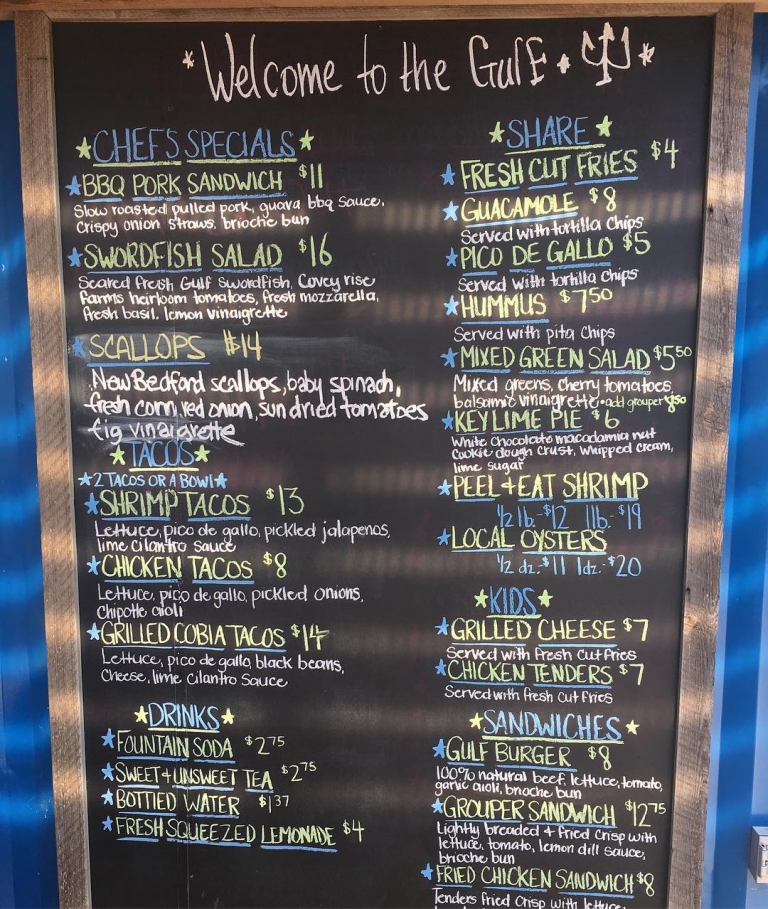 *Welcome to the Gulf.*
CHEF'S SPECIALS
BBQ PORK SANDWICH $11
Slow roasted pulled pork, guava bbq sauce,
Crispy onion straws, brioche bun
SWORDFISH SALAD $16
Seared fresh Gulf Swordfish, Covey rise
Farms heirloom tomatoes, fresh mozzarella,
fresh basil, lemon vinaigrette
SCALLOPS $14
New Bedford scallops, baby spinach,
fresh corn, red onion, sun dried tomatoes
fig vinaigrette
TACOS
*2 TACOS OR A BOWL*
SHRIMP TACOS $13
Lettuce, pico de gallo, pickled jalapenos,
lime cilantro sauce
CHICKEN TACOS $8
Lettuce, pico de gallo, pickled onions,
Chipotle aioli
GRILLED COBIA TACOS $14
Lettuce, pico de gallo, black beans,
Cheese, lime cilantro Sauce
DRINKS
FOUNTAIN SODA $2.75
SWEET + UNSWEET TEA $2.75
BOTTLED WATER $1.37
FRESH SQUEEZED LEMONADE $4
SHARE
FRESH CUT FRIES $4
GUACAMOLE $8
Served with tortilla Chips
PICO DE GALLO $5
Served with tortilla Chips
HUMMUS $7.50
Served with pita Chips
MIXED GREEN SALAD $5.50
Mixed greens, cherry tomatoes,
balsamic vinaigrette • add grouper
KEY LIME PIE $6
White Chocolate macadamia nut
Cookie dough Crust, Whipped cream,
lime sugar
PEEL + EAT SHRIMP
1/2 lb.-$12 1lb.-$19
LOCAL OYSTERS
1/2 dz.-$11 1dz.-$20
KIDS
GRILLED CHEESE $7
Served with Fresh Cut Fries
CHICKEN TENDERS $7
Served with fresh cut fries
SANDWICHES
GULF BURGER $8
100% natural beef, lettuce, tomato,
garlic aioli, brioche bun
GROUPER SANDWICH $12.75
Lightly breaded + fried Crisp with
lettuce, tomato, lemon dill sauce,
brioche bun
FRIED CHICKEN SANDWICH $8
Tenders fried Crisp with lettuce,